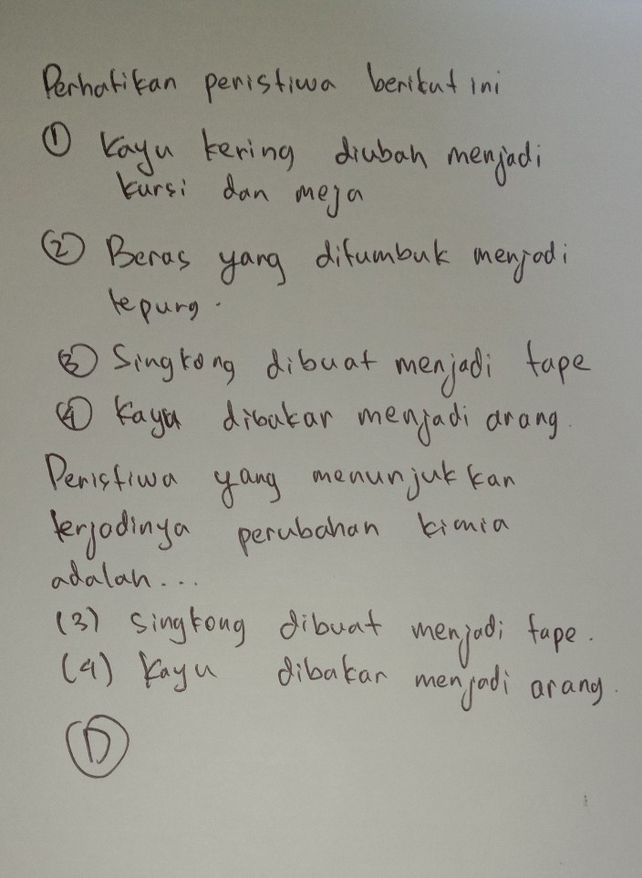 Perhatikan peristiwa berikut ini
① Kayu kering diubah menjadi
kursi dan meja
② Beras yang ditumbuk menjadi
tepung.
③ Singkong dibuat menjadi tape
④ Kayu dibakar menjadi arang.
Peristiwa yang menunjukkan
terjadinya perubahan kimia
adalah...
(3) singkong dibuat menjadi tape.
(4) Kayu dibakar menjadi arang.
Ⓓ